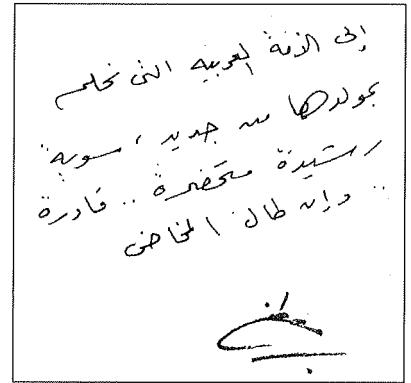 إلى الأمة العربية التى نحلم
بمولدها من جديد ، سوية
رشيدة متحضرة .. قادرة
.. وإن طال المخاض